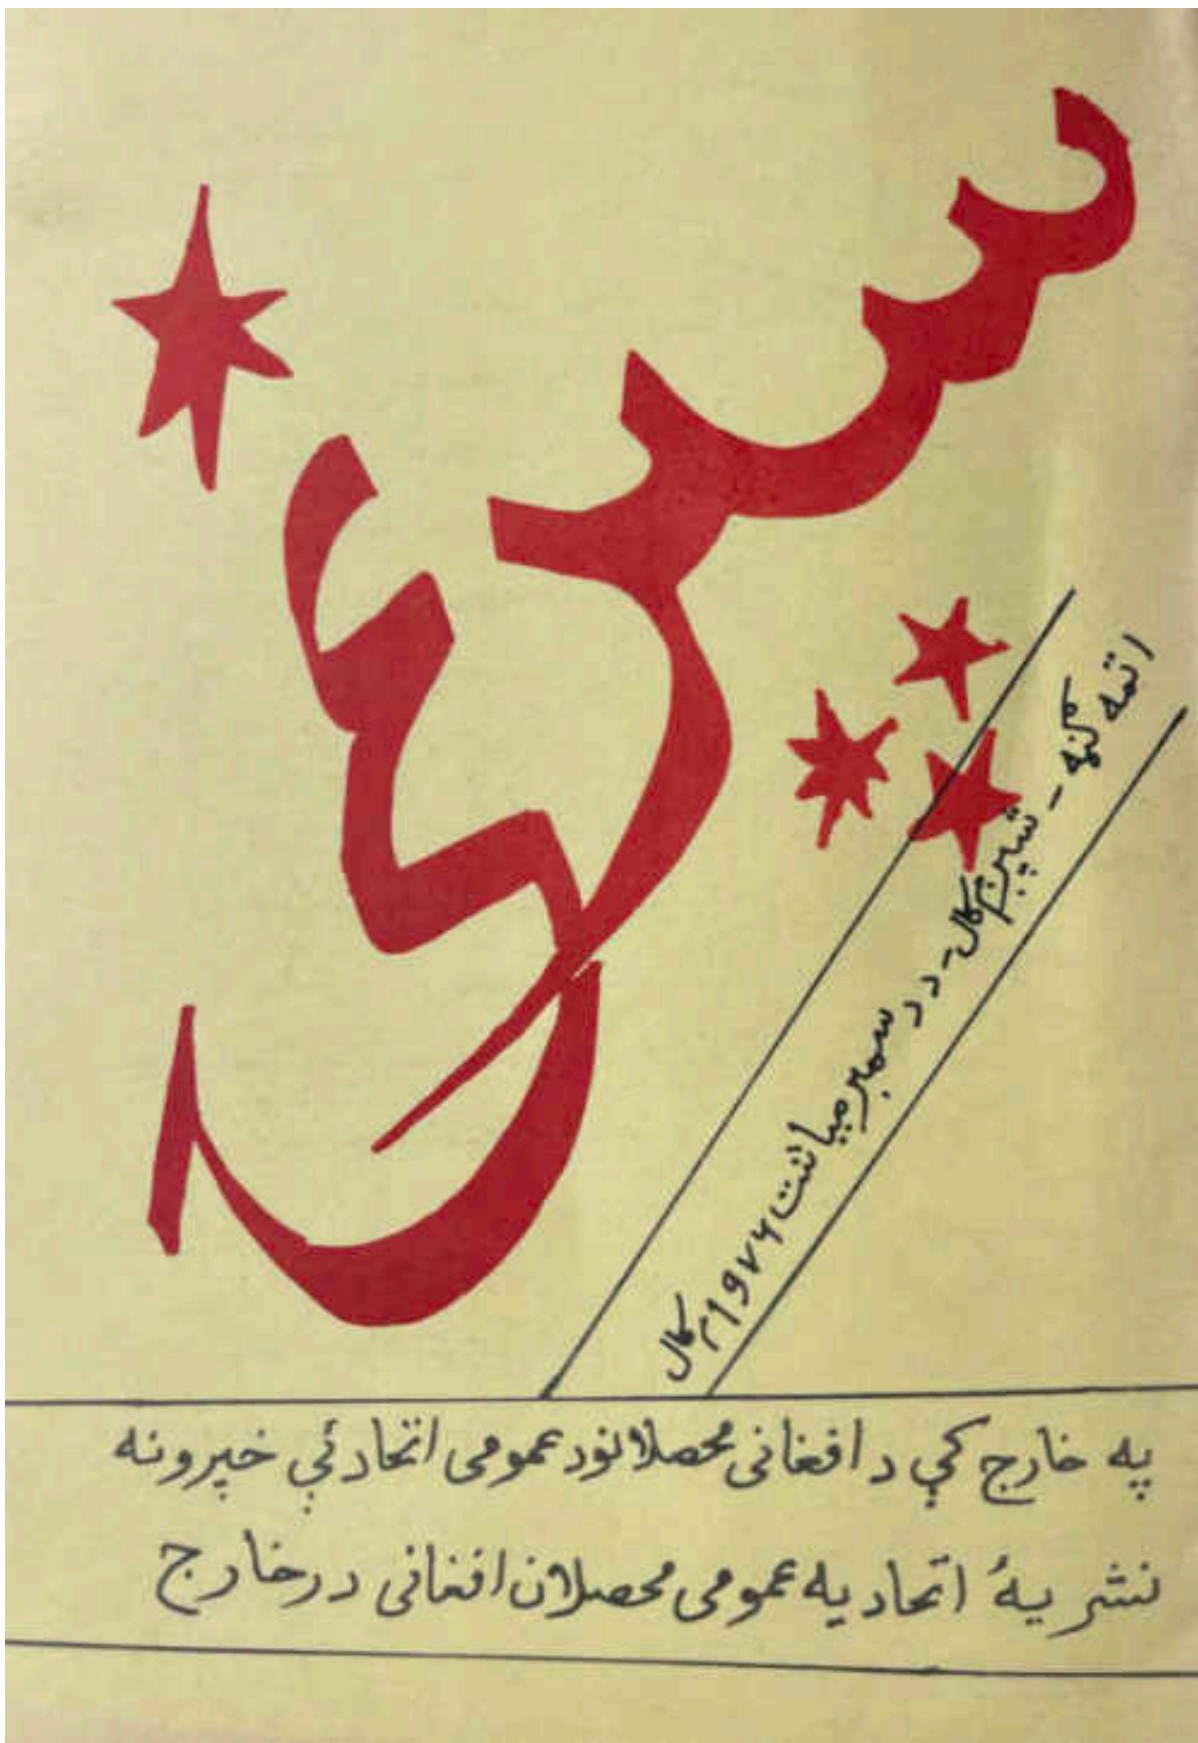 سپرغی
اتمه ګڼه - شپږم کال - د دسمبر میاشت ۱۹۷۶م کال
په خارج کې د افغانی محصلانو د عمومی اتحادئې خپرونه
نشریهٔ اتحادیه عمومی محصلان افغانی در خارج